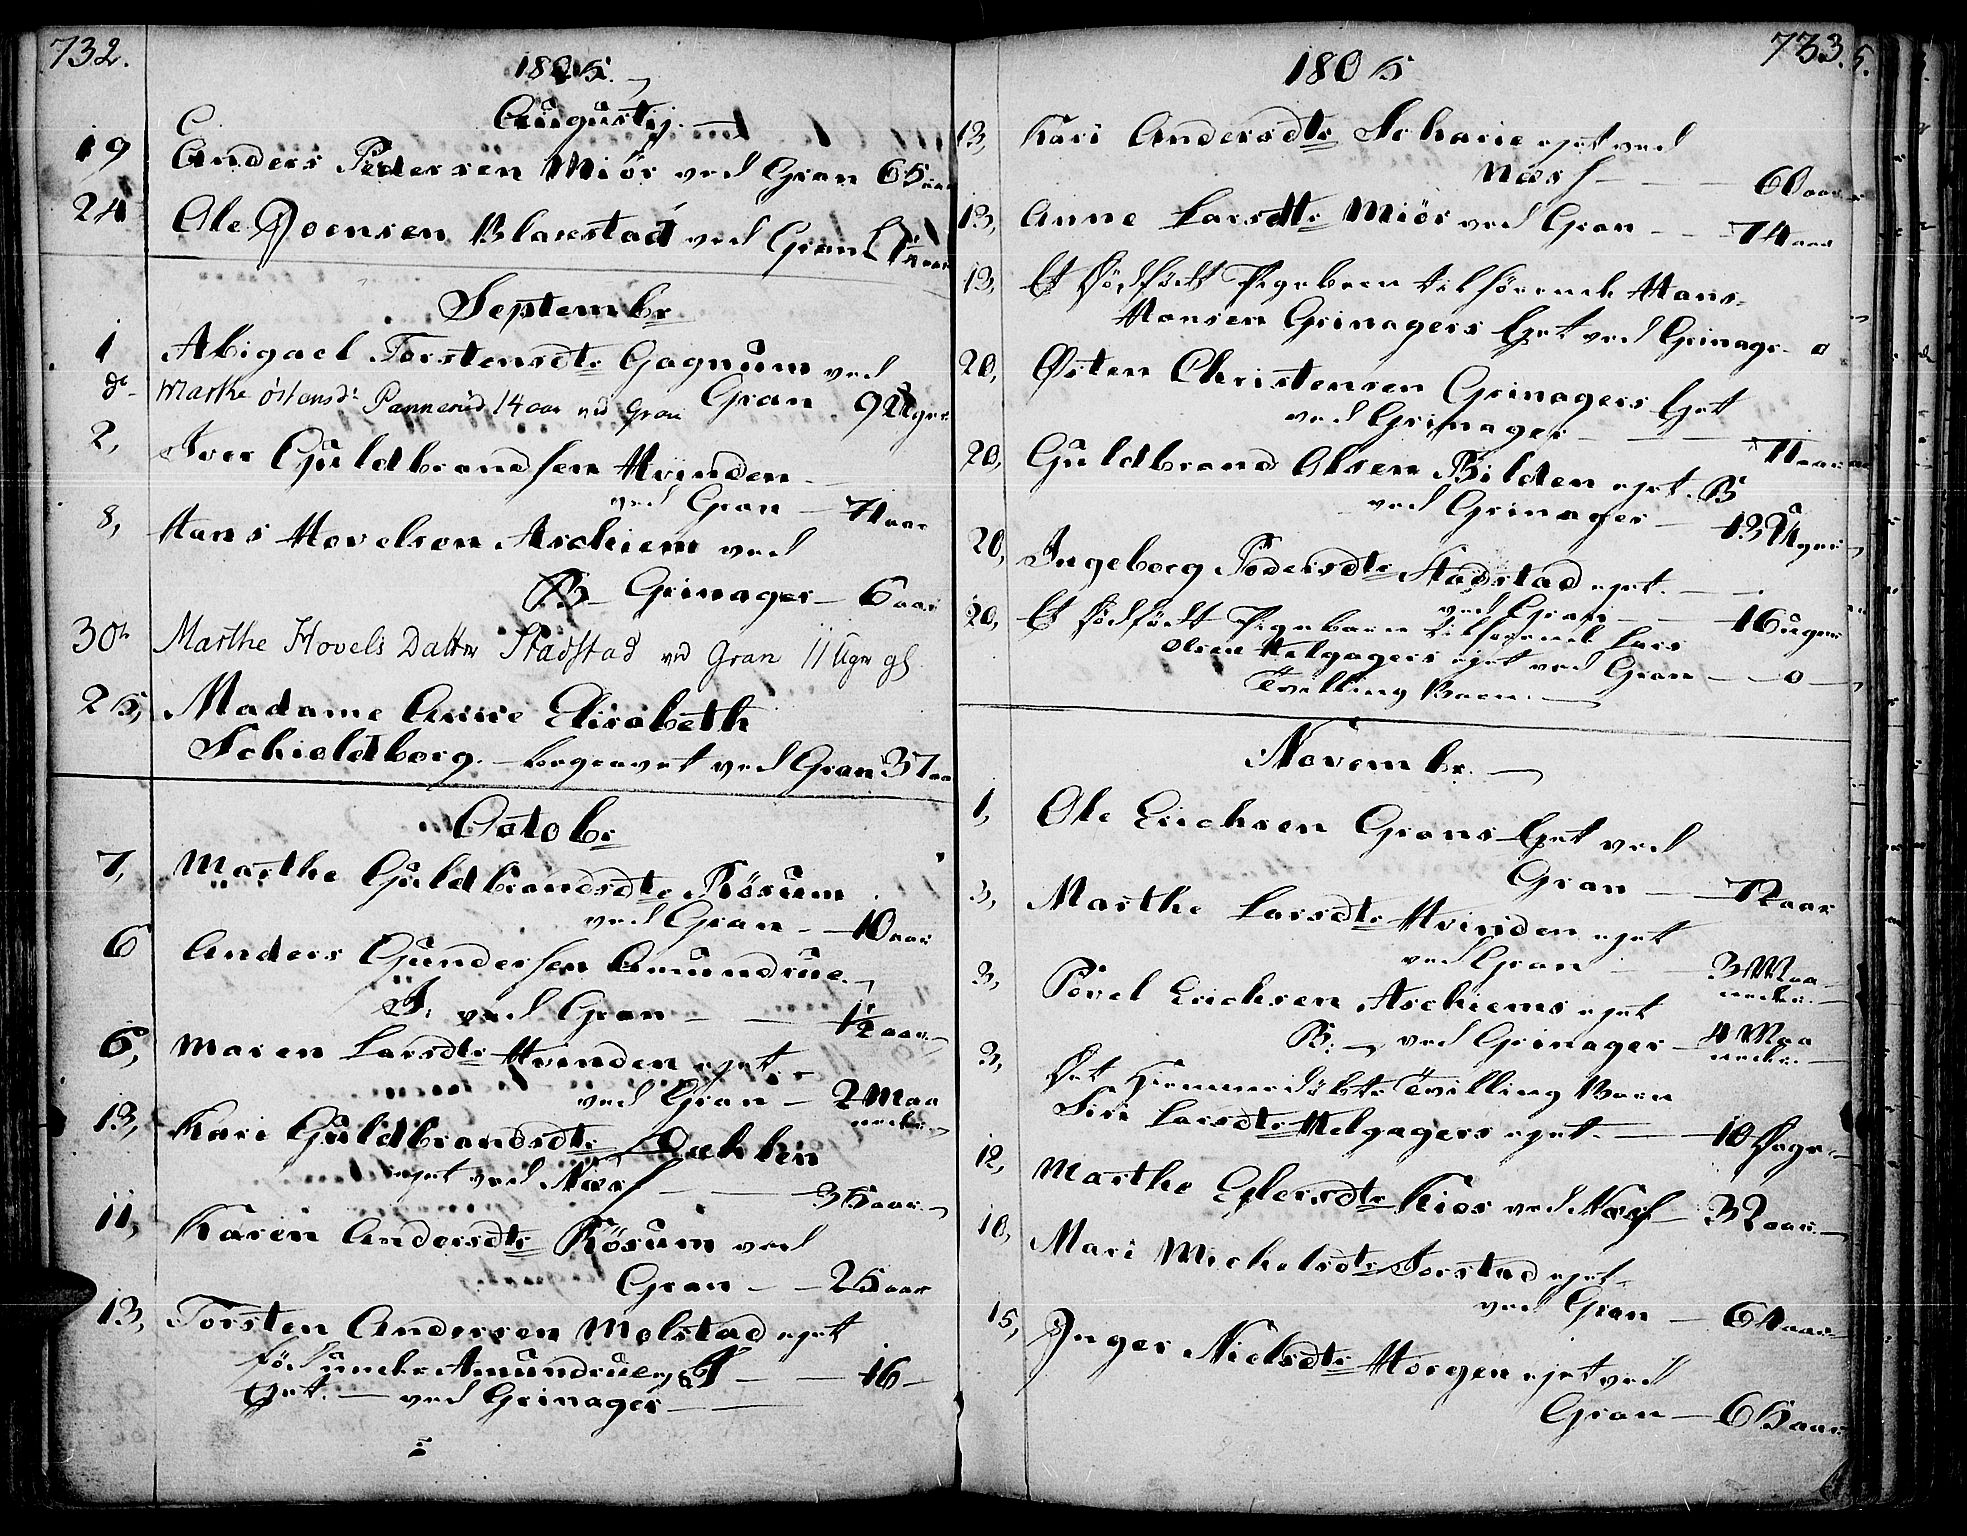 732.
1805.
Augustij.
19 Anders Pedersen Miör ved Gran 65 aar
24 Ole Joensen Blakestad ved Gran
Septembr
1 Abigael Torstensdtr Gagnum ved
Gran 9 Uger
do Marthe Östensdr Pannerud 14 aar ved Gran
2, Iver Guldbrandsen Hvinden
ved Gran 71 aar
8, Hans Hovelsen Aschiem ved
B Grinager 6 aar
30te Marthe Hovels Datter Stadstad ved Gran 11 Uger gl
25, Madame Anne Elisabeth
Schieldborg. begravet ved Gran 37 aar
Octobr
7, Marthe Guldbrandsdtr Rösum
ved Gran 10 aar
6 Anders Gundersen Amundrue
I. ved Gran 1/2 aar
6, Maren Larsdtr Hvinden ejet
ved Gran 2 Maaneder
13, Kari Guldbrandsdtr Dæhlen
ejet ved Næss 35 aar
11, Karen Andersdtr Rösum ved
Gran 25 aar
13, Torsten Andersen Molstad ejet
föd under Amundrue I 16
ejet. ved Grinager
733.
1805
13, Kari Andersdtr Scharie ejet ved
Næss 60 aar
13, Anne Larsdtr Miör ved Gran 74 aar
13, Et dödfödt Pigebarn tilhörende Hans
Hansen Grinagers Ejet ved Grinager 0
20, Østen Christensen Grinagers Ejet
ved Grinager 71 aar
20, Guldbrand Olsen Bilden ejet. B
ved Grinager 13 Uger
20, Ingeborg Pedersdtr Stadstad ejet.
ved Gran 16 uger
20, Et dödfödt Pigebarn tilhörende Lars
Olsen Helgagers ejet ved Gran 0
Tvilling Barn.
Novembr.
1, Ole Erichsen Grans Ejet ved
Gran 72 aar
3, Marthe Larsdtr Hvinden ejet
ved Gran 3 Maaneder.
3, Povel Erichsen Aschiems ejet
B. ved Grinager 4 Maaneder.
3, Det hiemmedöbte Tvilling Barn
Siri Larsdtr Helgagers ejet. 10 Dage
12, Marthe Ejlersdtr Kios ved Næss 32 aar.
10, Mari Michelsdtr Torstad ejet
ved Gran 64 aar
15, Inger Nielsdtr Horgen ejet ved
Gran 65 aar.